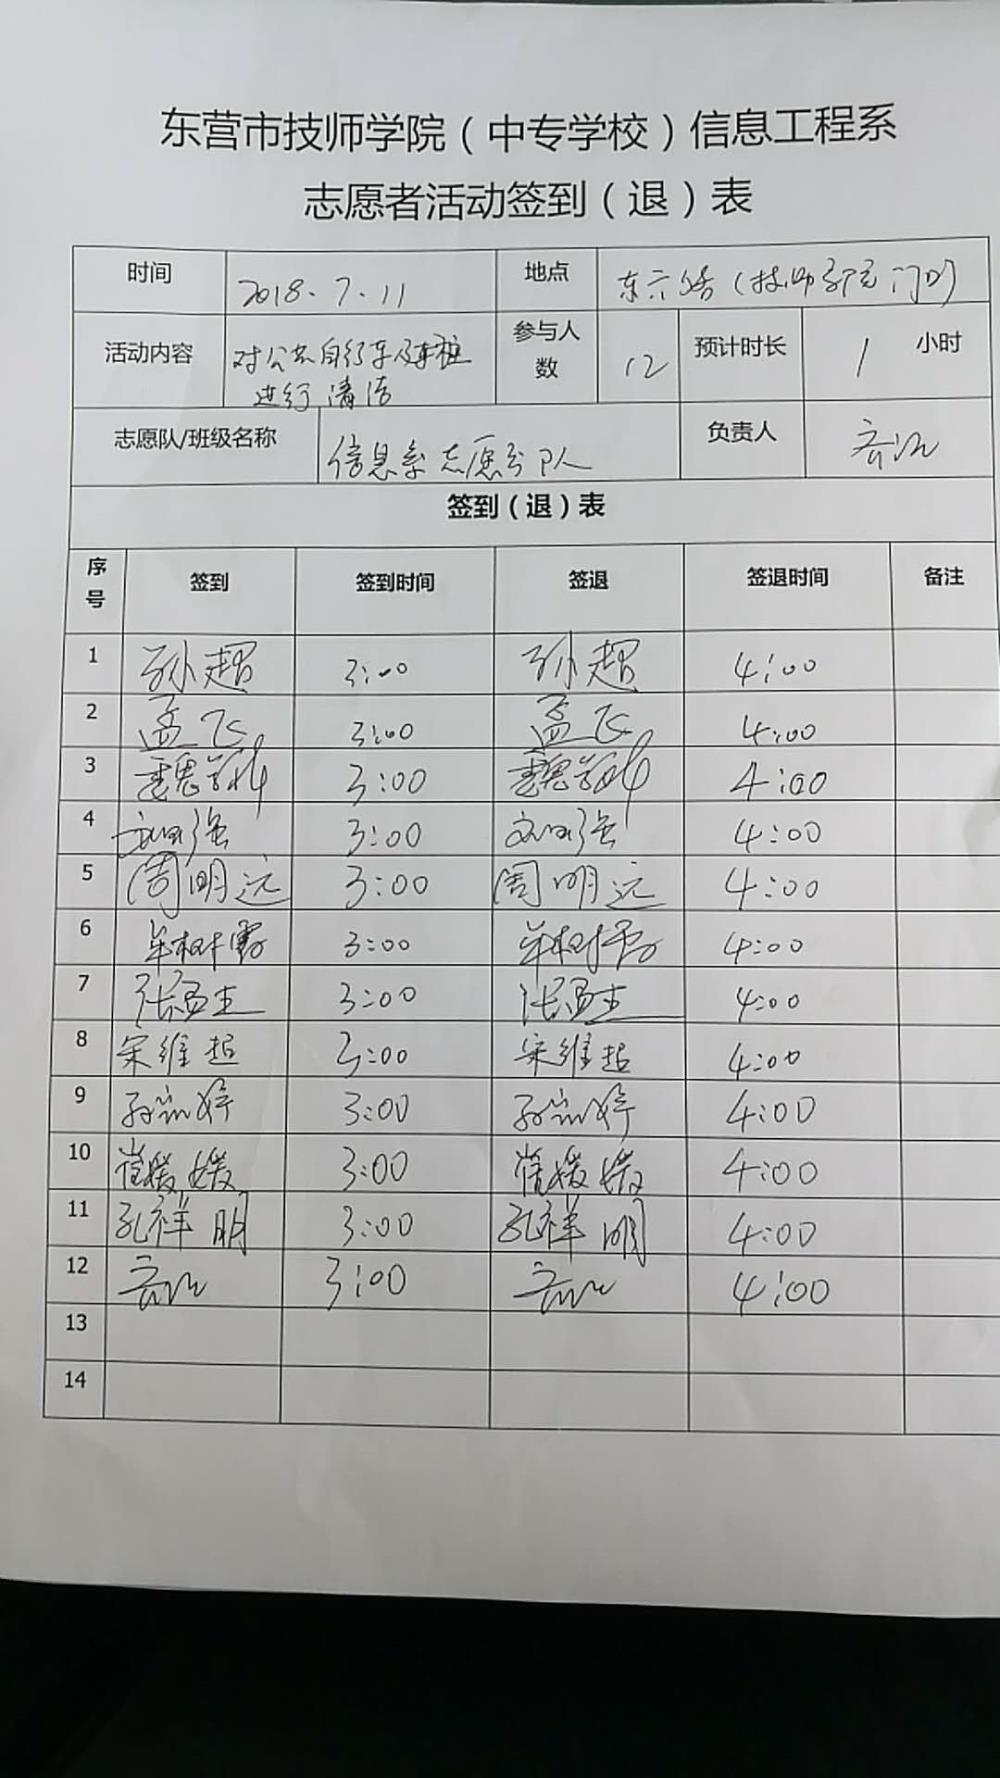 东营市技师学院（中专学校）信息工程系
志愿者活动签到（退）表
时间 2018.7.11 地点 东六路（技师学院门口）
活动内容 对公共自行车及车桩进行清洁 参与人数 12 预计时长 1 小时
志愿队/班级名称 信息系志愿分队 负责人
签到（退）表
序号 签到 签到时间 签退 签退时间 备注
1 孙超 3:00 孙超 4:00
2 孟飞 3:00 孟飞 4:00
3 3:00 4:00
4 3:00 4:00
5 周明远 3:00 周明远 4:00
6 牟树霞 3:00 牟树霞 4:00
7 张孟杰 3:00 张孟杰 4:00
8 宋维超 3:00 宋维超 4:00
9 3:00 4:00
10 崔媛媛 3:00 崔媛媛 4:00
11 孔祥明 3:00 孔祥明 4:00
12 3:00 4:00
13
14